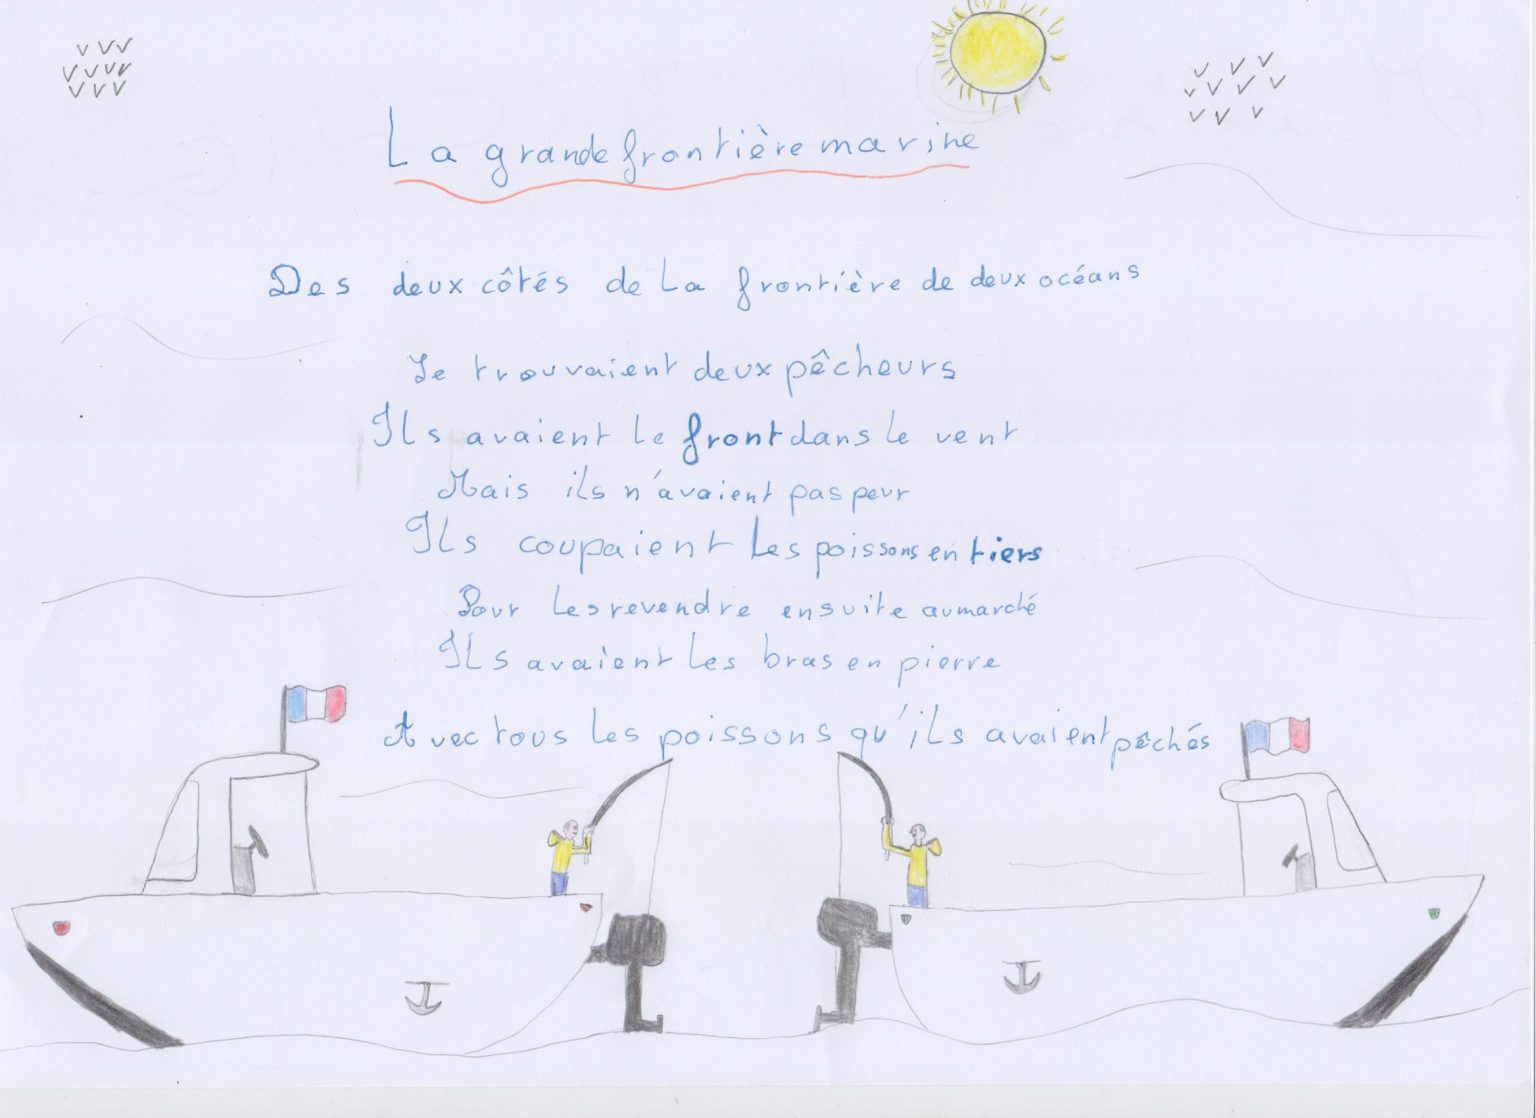 La grande frontière marine
Des deux côtés de la frontière de deux océans
Se trouvaient deux pêcheurs
Ils avaient le front dans le vent
Mais ils n'avaient pas peur
Ils coupaient les poissons en tiers
Pour les revendre ensuite au marché
Ils avaient les bras en pierre
Avec tous les poissons qu'ils avaient pêchés